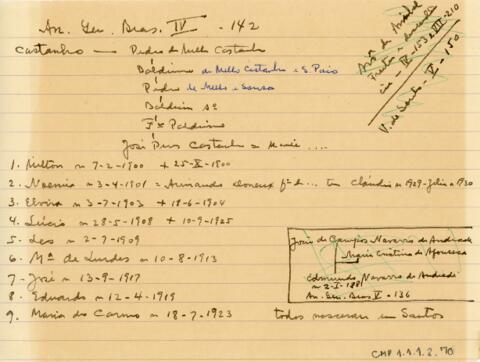 An. Gen. Bras. IV - 142
Castanho — Pedro de Mello Castanho
Balduino de Mello Castanho e S. Paio
Pedro de Mello e Sousa
Balduin
José Pires Castanho = Maria ....
1. Milton n 7-2-1900 + 25-X-1900
2. Noemia n 3-4-1901 = Armando ... Cláudio n 1929 - Júlio n 1930
3. Elvira n 3-7-1903 + 18-6-1904
4. Lúcio n 28-5-1908 + 10-9-1925
5. Leo n 2-7-1909
6. Mª de Lurdes n 10-8-1913
7. José n 13-9-1917
8. Eduardo n 12-4-1919
9. Maria do Carmo n 18-7-1923 todos nasceram em Santos
IV-153 e VI-210
V. de Santo - V - 150
José de Campos Navarro de Andrade
Maria Cristina de Afonseca
Edmundo Navarro de Andrade
n 2-I-1881
An. Gen. Bras V - 136
CMP 1.1.9.2.70